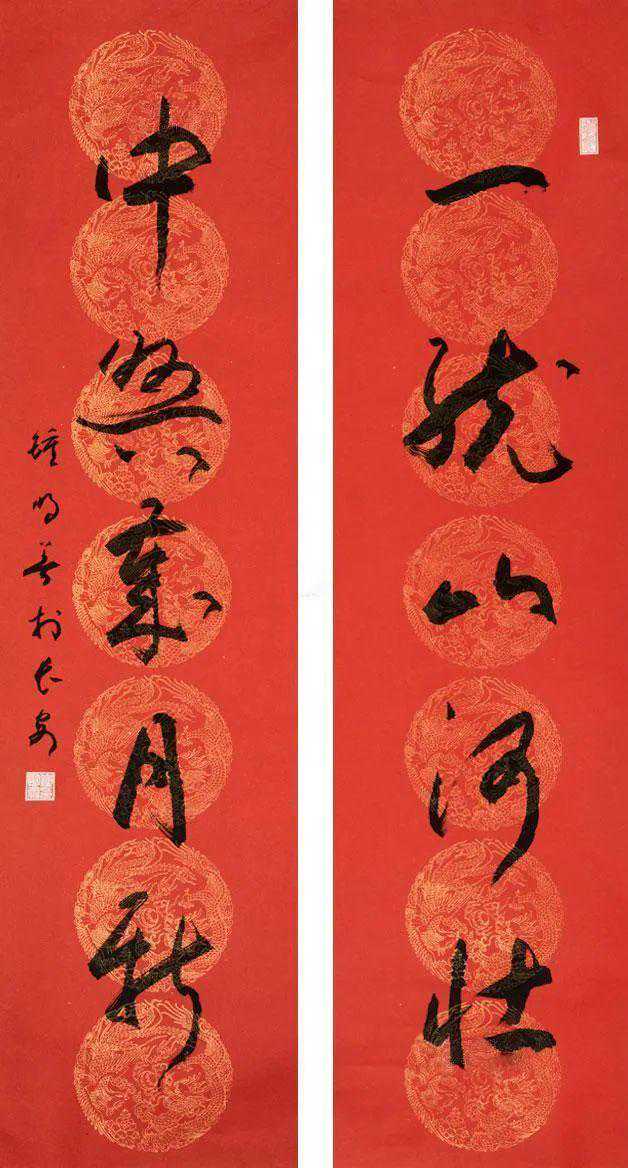 一統山河壯
中興歲月新
鍾明善於長安